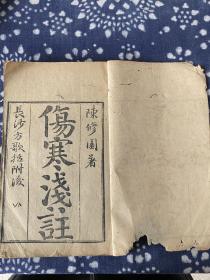 陳修園著
傷寒淺註
長沙方歌括附後